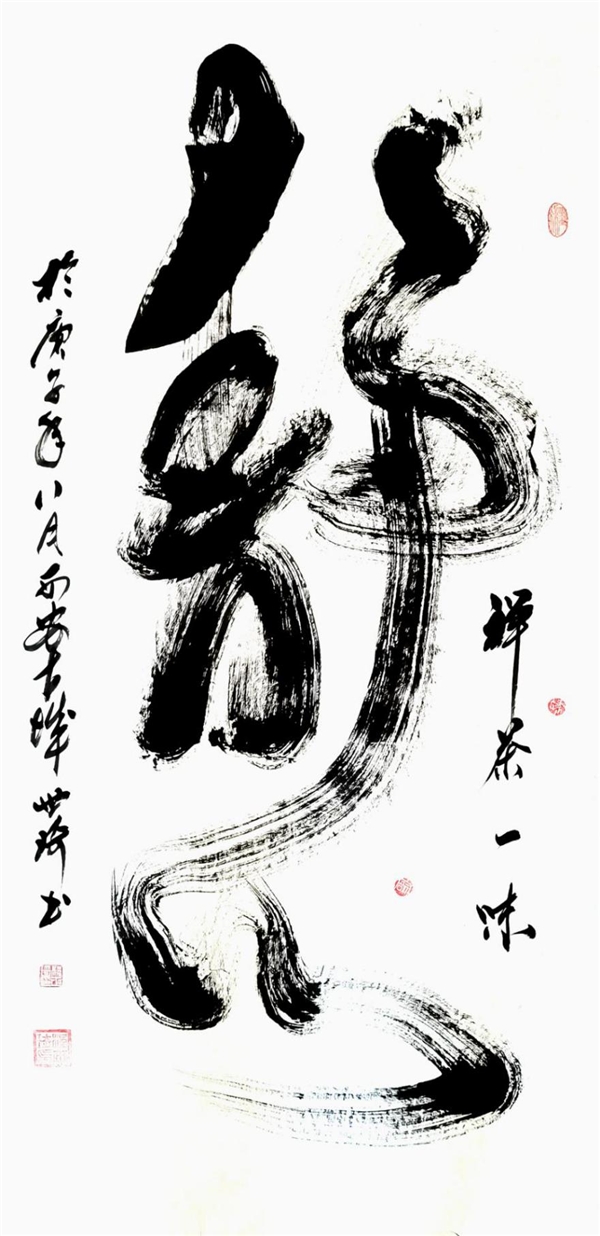 禅茶一味
静
於庚子年八月西安古城世琦书